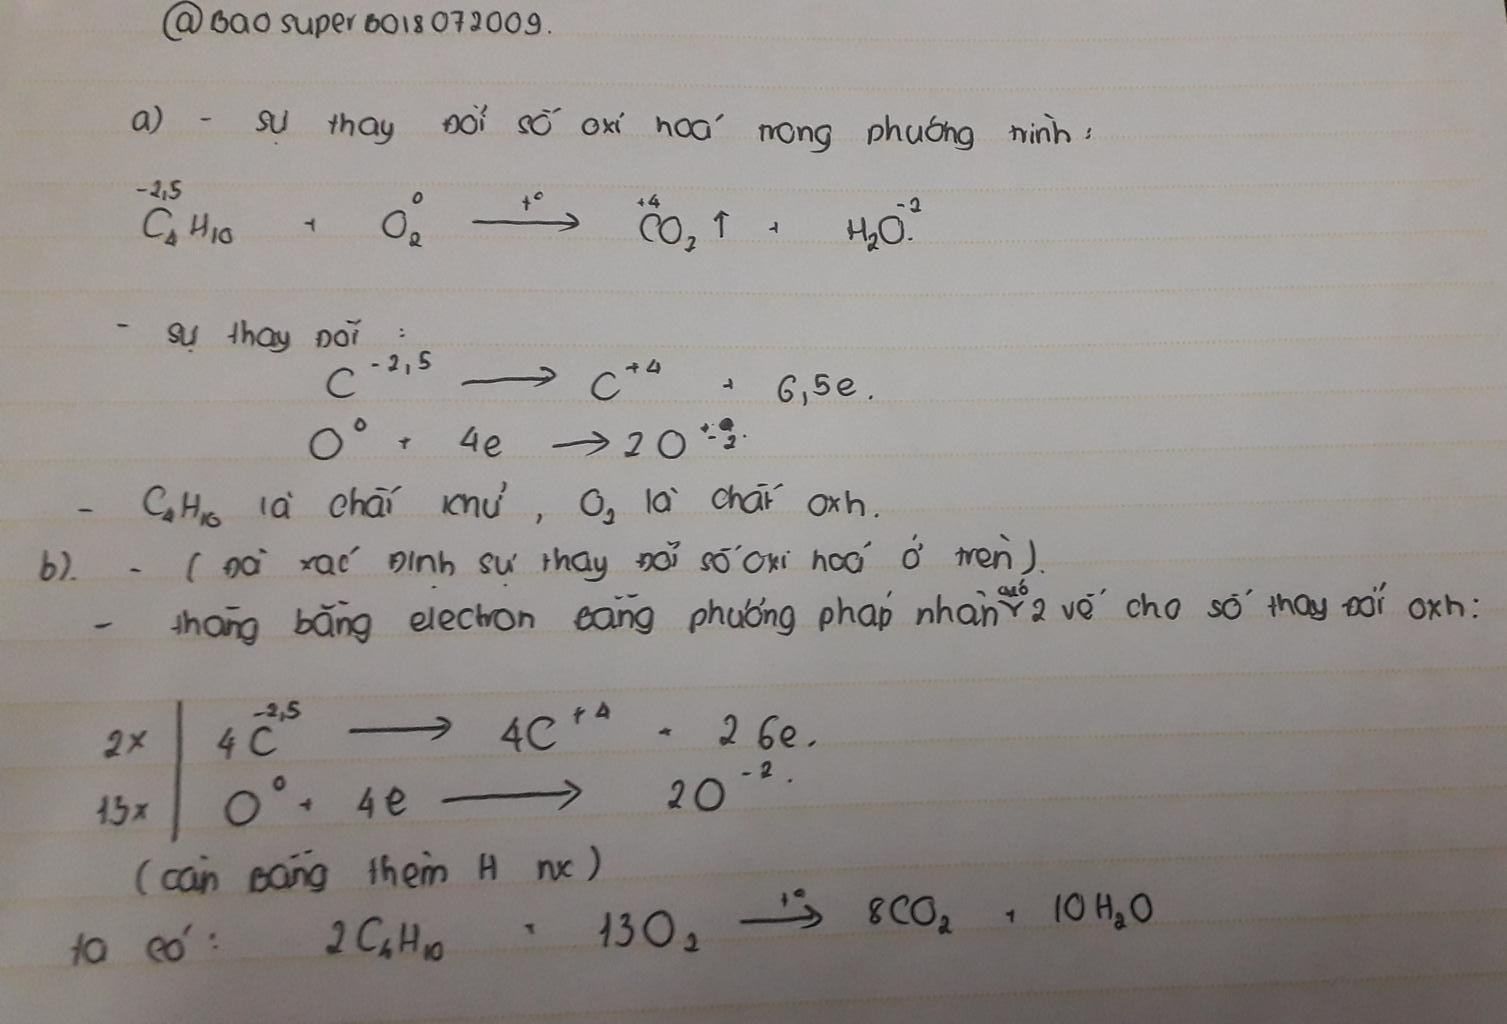 @Baosuperbo18072009.
a) - sự thay đổi số oxi hoá trong phương trình:
-2,5 0 t° +4 -2
C₄H₁₀ + O₂ → CO₂↑ + H₂O.
- sự thay đổi:
C⁻²,⁵ → C⁺⁴ + 6,5e.
O⁰ + 4e → 2O⁻².
- C₄H₁₀ là chất khử, O₂ là chất oxh.
b). - (đã xác định sự thay đổi số oxi hoá ở trên).
- thăng bằng electron bằng phương pháp nhân 2 vế cho số thay đổi oxh:
2x | 4C⁻²,⁵ → 4C⁺⁴ + 26e.
13x | O⁰ + 4e → 2O⁻².
(cân bằng thêm H nx)
ta có: 2C₄H₁₀ + 13O₂ t° → 8CO₂ + 10H₂O